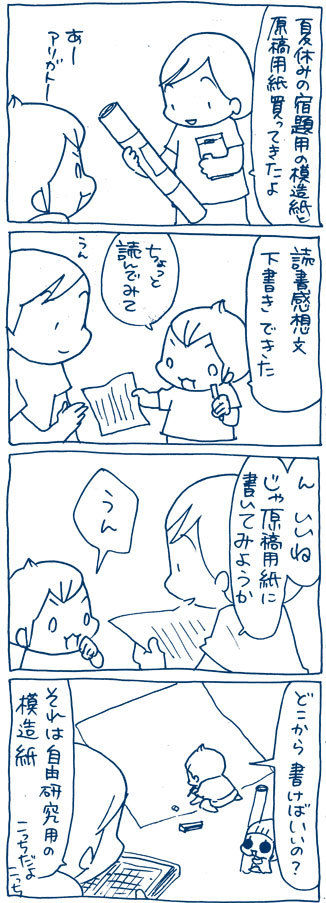 夏休みの宿題用の模造紙と
原稿用紙買ってきたよ
あー
アリガトー
読書感想文
下書きできた
ちょっと
読んでみて
うん
ん いいね
じゃ原稿用紙に
書いてみようか
うん
どこから書けばいいの?
それは自由研究用の
模造紙
こっちだよ
こっち